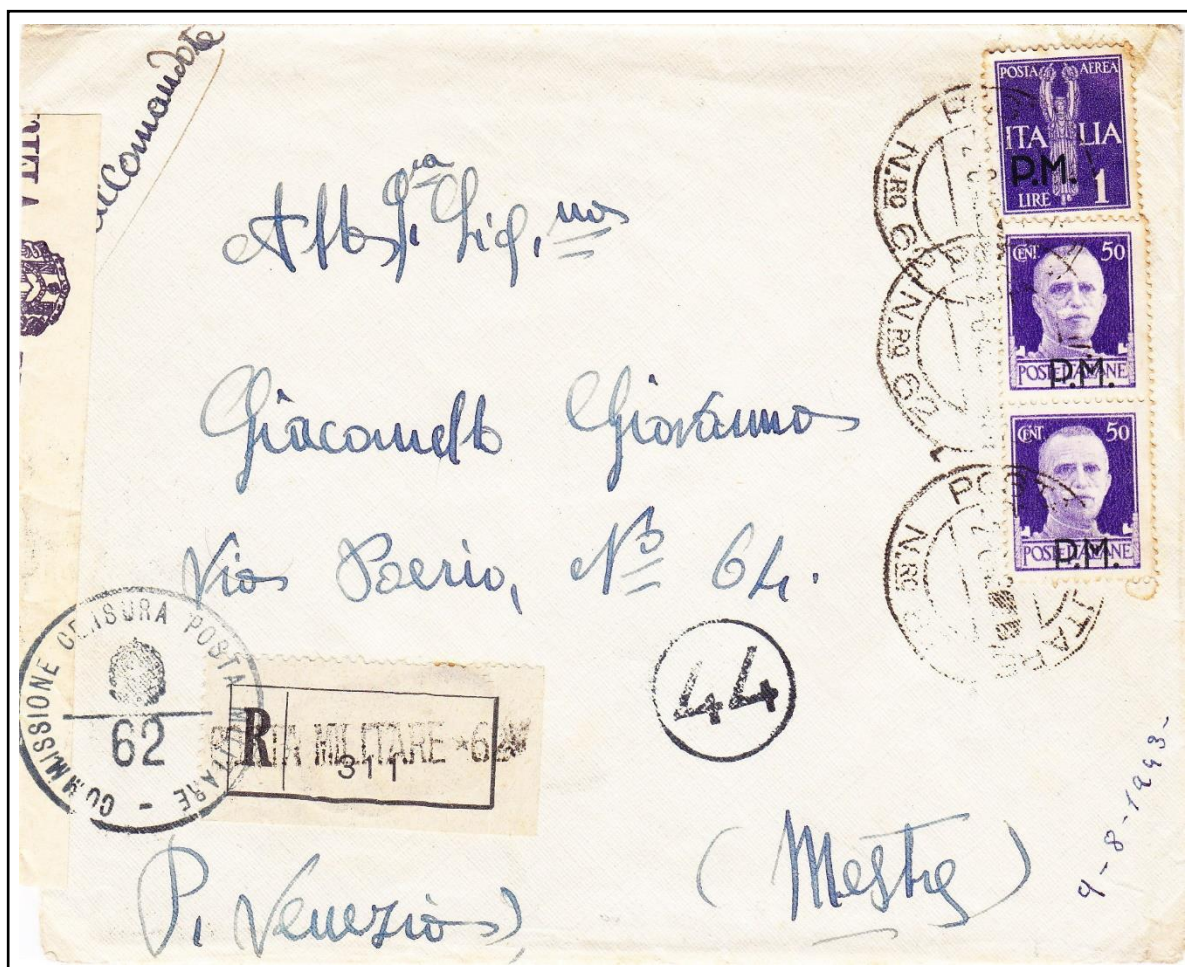 Raccomandata
VER
POSTA AEREA
ITALIA
P.M.
LIRE 1
CENT 50
POSTE ITALIANE
P.M.
CENT 50
POSTE ITALIANE
P.M.
N.RO
N.RO
N.RO
Giacomello Giovanna
Via Poerio, N° 64.
COMMISSIONE CENSURA POSTA MILITARE -
62
R
POSTA MILITARE *62*
311
44
(Mestre)
P. Venezia)
9-8-1943-